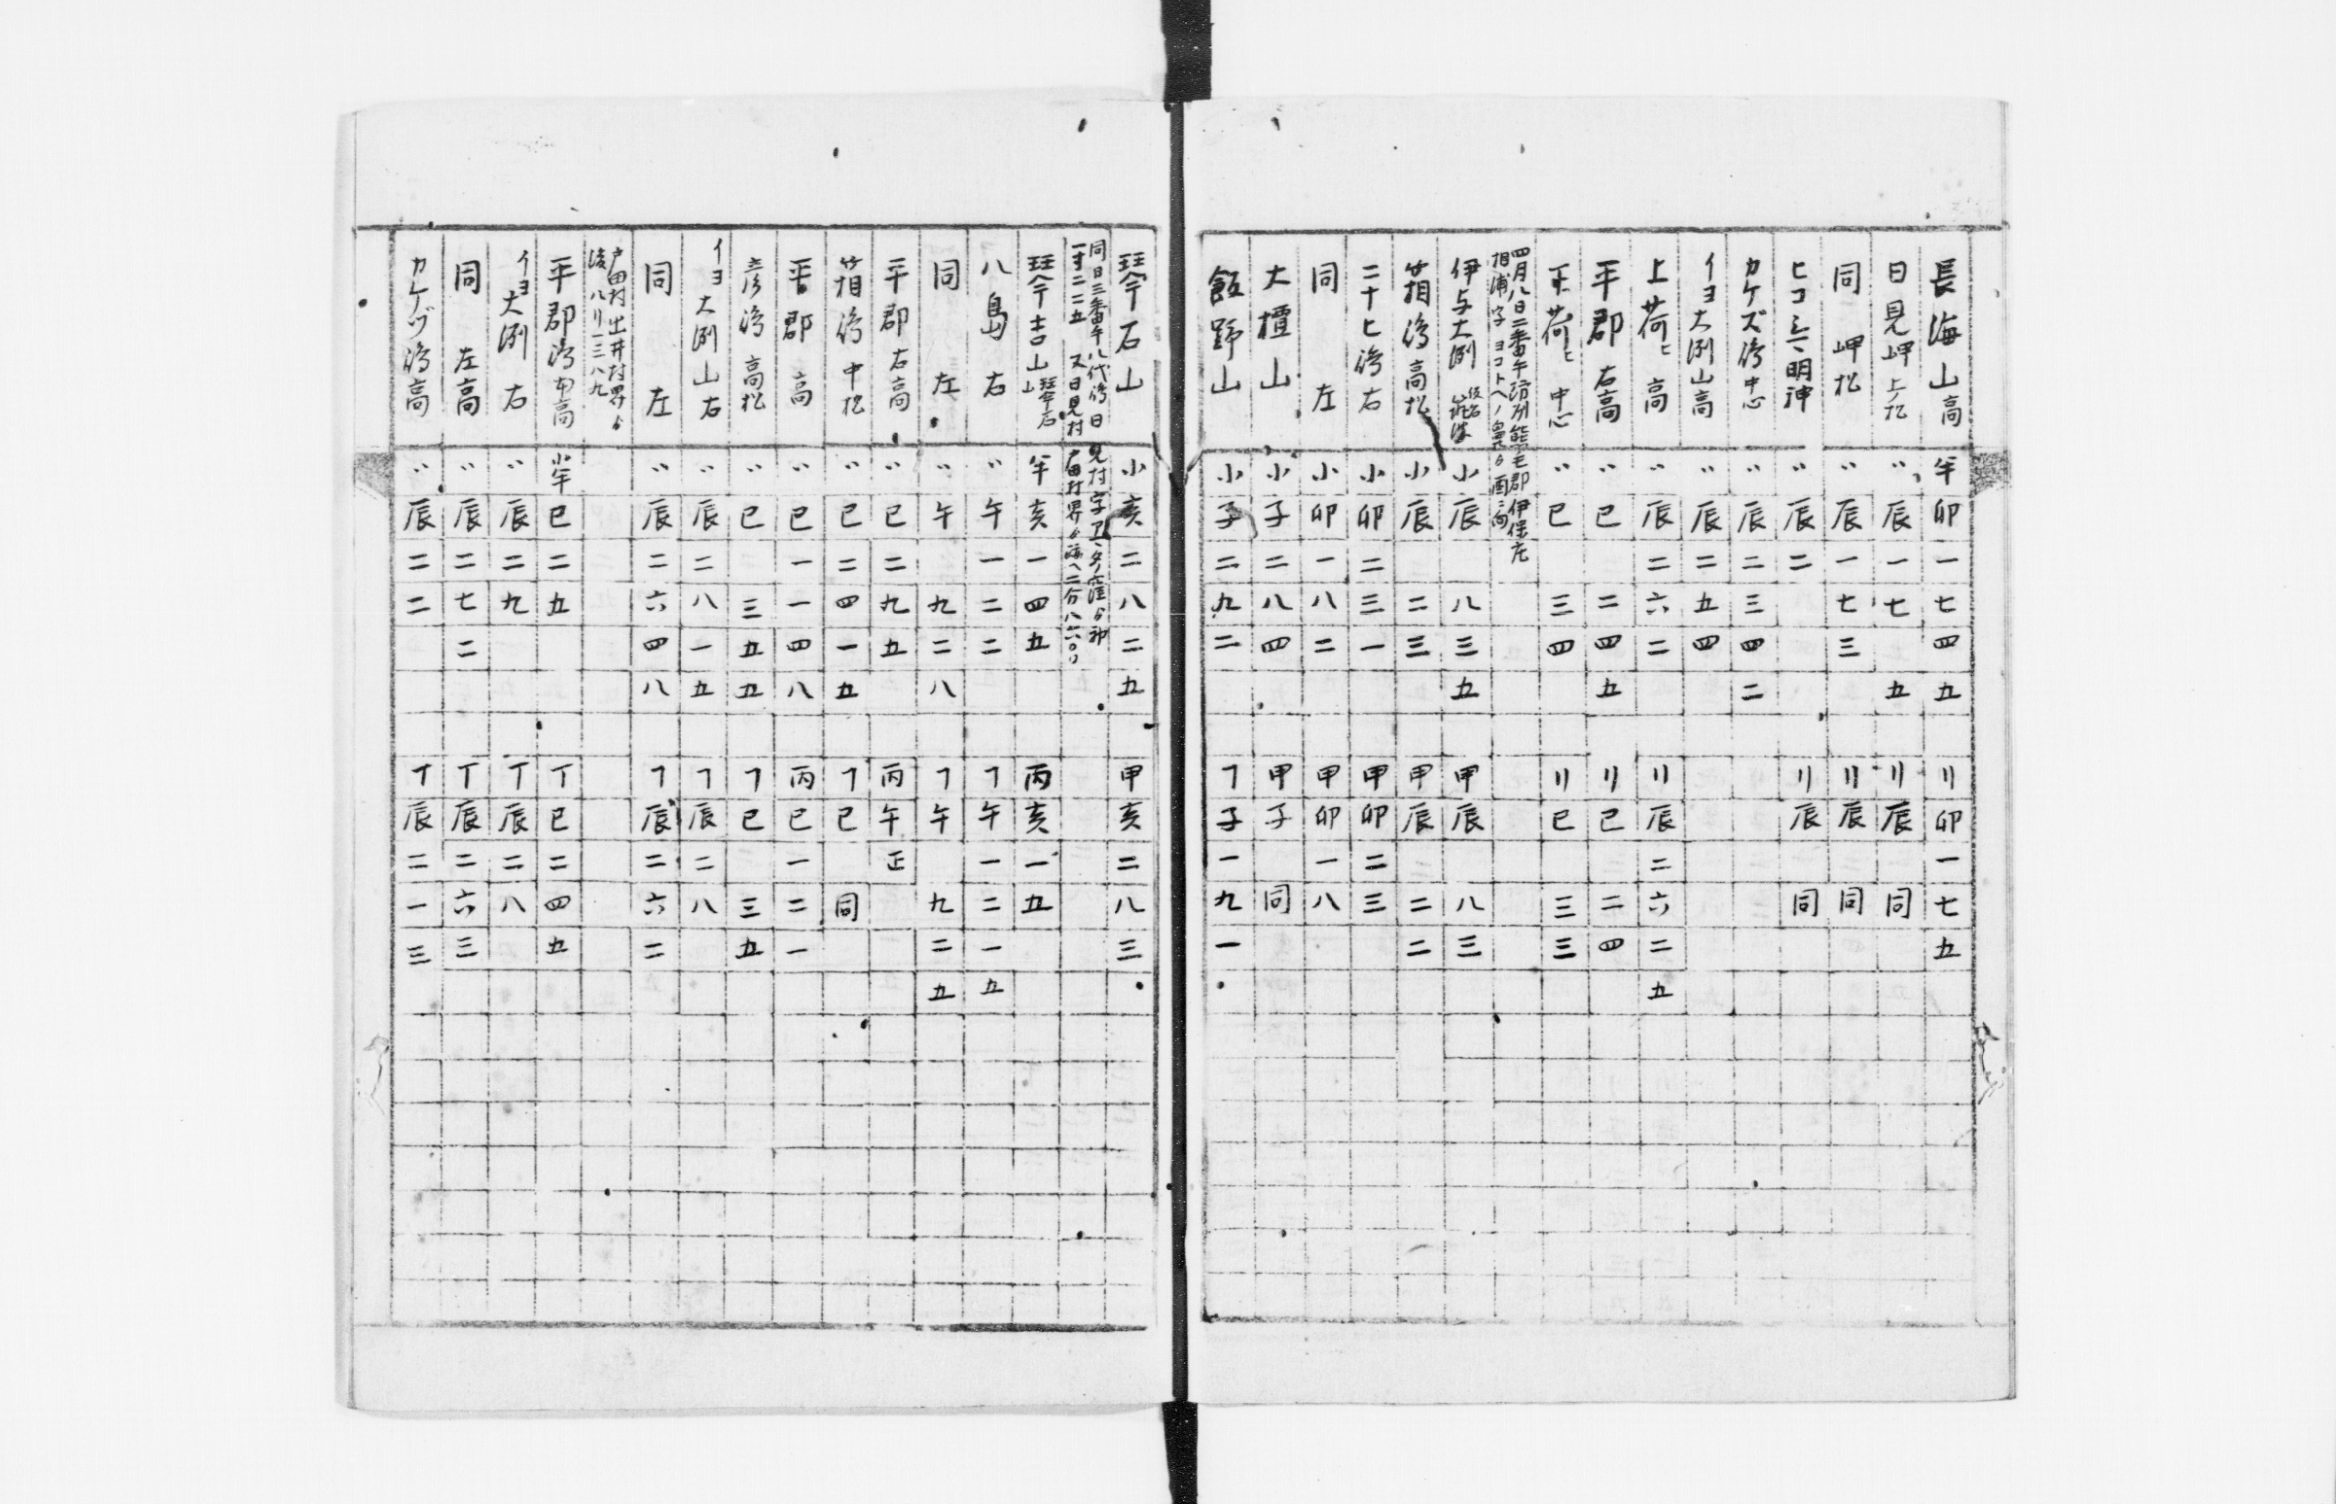 長海山高 半卯一七四五 〃卯一七五
日見岬上ノ松 〃辰一七五 〃辰同
同岬松 〃辰一七三 〃辰同
〃辰二 〃辰同
カケズ島中心 〃辰二三四二
イヨ大洌山高 〃辰二五四
上荷ヒ高 〃辰二六二 〃辰二六二五
平郡右高 〃巳二四五 〃巳二四
下荷ヒ中心 〃巳三四 〃巳三三
四月八日二番手防州熊毛郡伊保庄
相浦字ヨコトヘノ鼻ゟ
伊与大洌 小辰八三五 甲辰八三
箱島高松 小辰二三 甲辰二二
二十ヒ島右 小卯二三一 甲卯二三
同左 小卯一八二 甲卯一八
大檀山 小子二八四 甲子同
飯野山 小子二九二 丁子一九一
琴石山 小亥二八二五 甲亥二八三
同日三番手八代島日見村字
又日見村戸田村界ゟ
琴吉山 半亥一四五 丙亥一五
八島右 〃午一二二 丁午一二一五
同左 〃午九二八 丁午九二五
平郡右高 〃巳二九五 丙午正
箱島中松 〃巳二四一五 丁巳同
平郡高 〃巳一一四八 丙巳一二一
彦島高松 〃巳三五五 丁巳三五
イヨ大洌山右 〃辰二八一五 丁辰二八
同左 〃辰二六四八 丁辰二六二
戸田村出井村界ゟ
後八リ一三八九
平郡島中高 小半巳二五 丁巳二四五
イヨ大洌右 〃辰二九 丁辰二八
同左高 〃辰二七二 丁辰二六三
カケヅ島高 〃辰二二 丁辰二一三